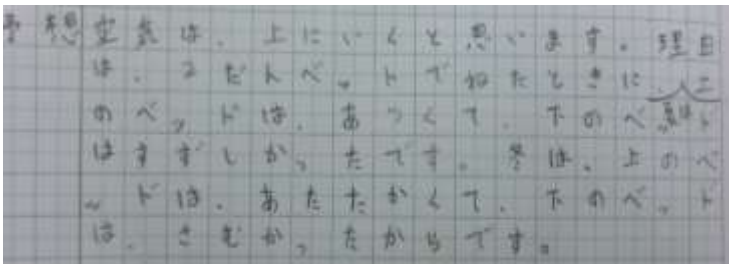 予想空気は、上にいくと思います。理由
は、2だんべっトでねたときに、上
のべッドは、あつくて、下のべット
はすずしかったです。冬は、上のべ
ッドは、あたたかくて、下のべット
は、さむかったからです。